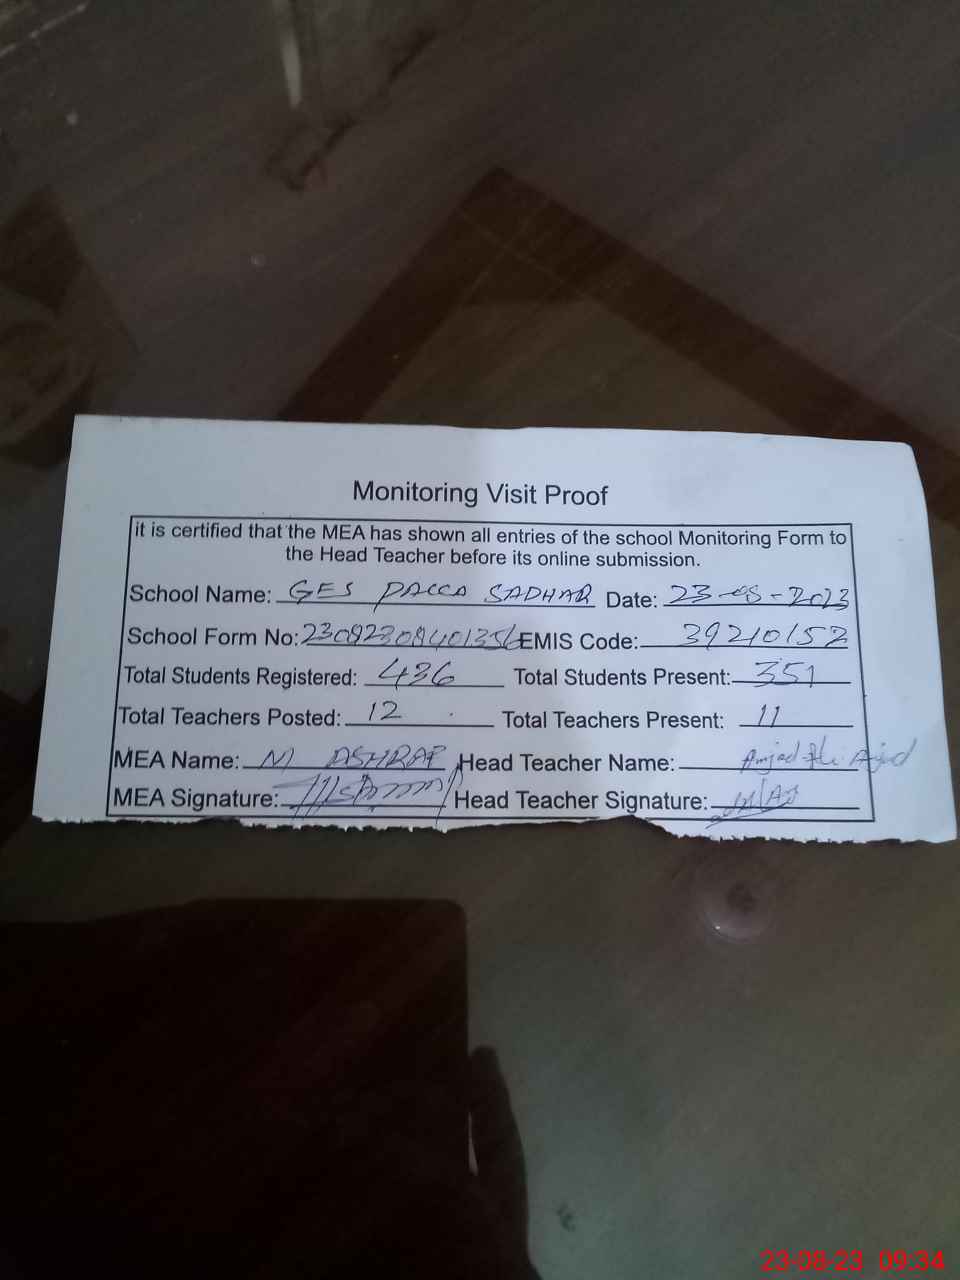 Monitoring Visit Proof
it is certified that the MEA has shown all entries of the school Monitoring Form to
the Head Teacher before its online submission.
School Name: GES PACCA SADHAR Date: 23-08-2023
School Form No: EMIS Code: 39210152
Total Students Registered: 436 Total Students Present: 351
Total Teachers Posted: 12 Total Teachers Present: 11
MEA Name: M ASHRAF Head Teacher Name: Amjad Ali Amjad
MEA Signature: Head Teacher Signature:
23-08-23 09:34